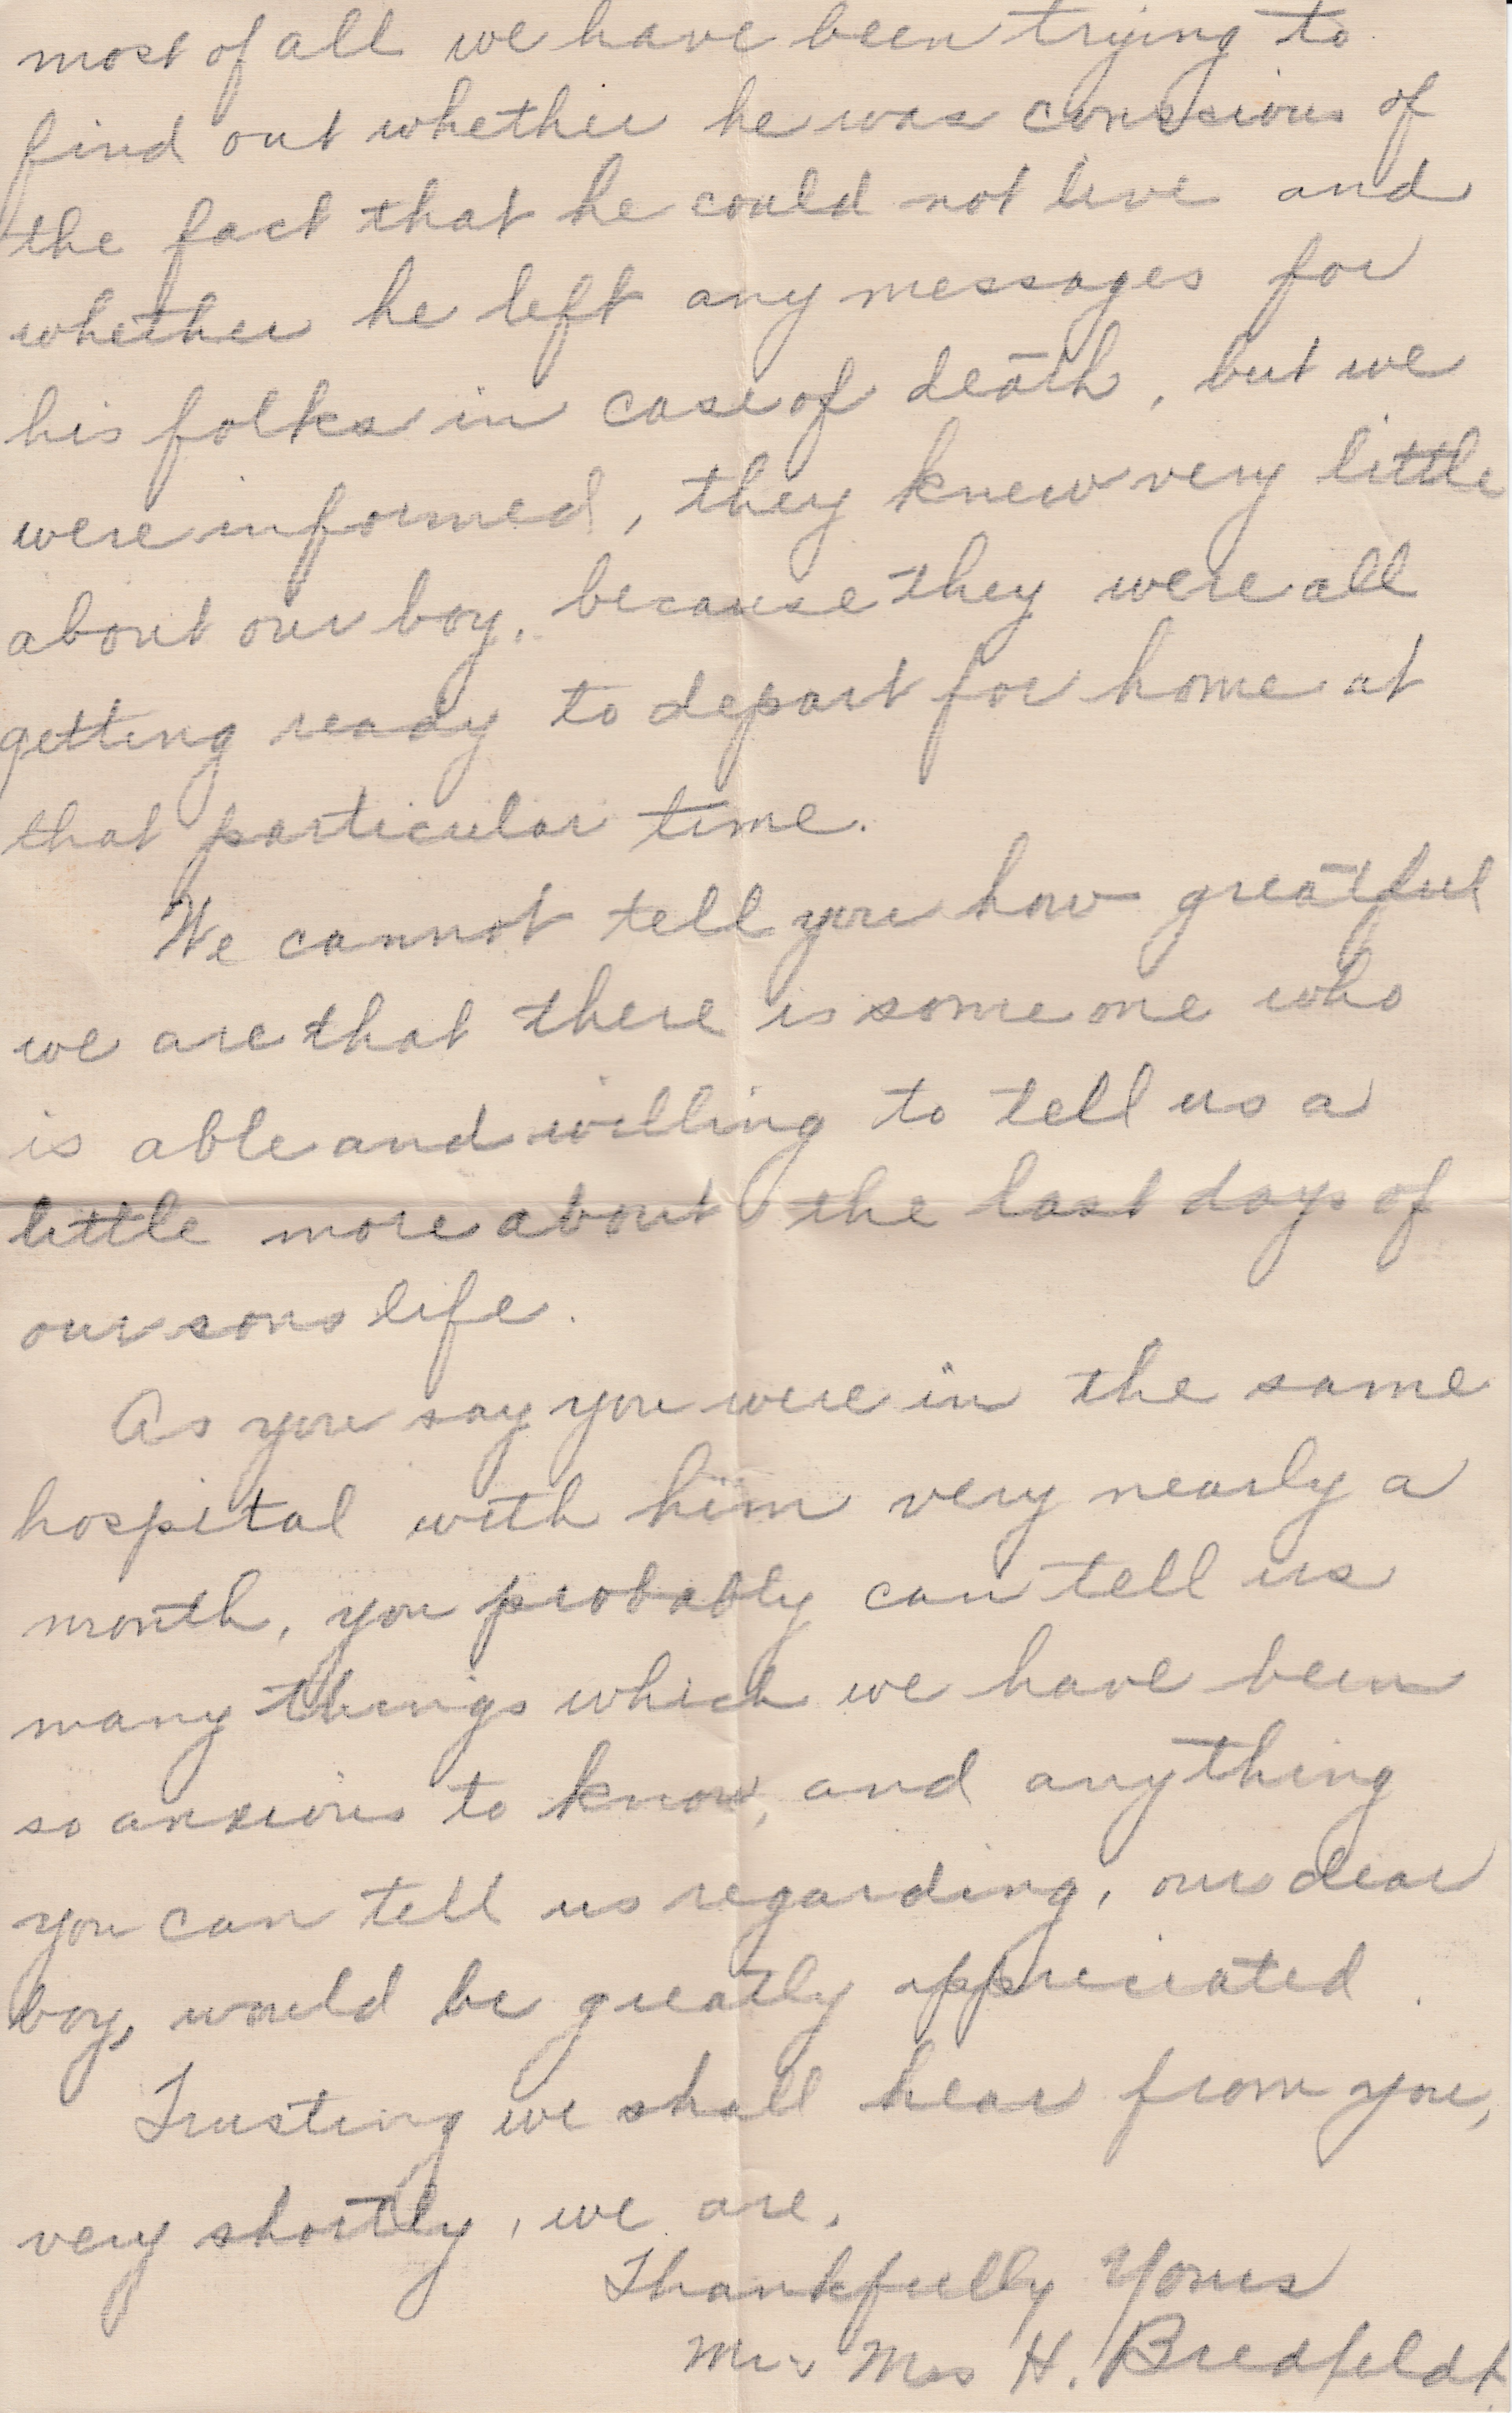 most of all we have been trying to
find out whether he was conscious of
the fact that he could not live and
whether he left any messages for
his folks in case of death, but we
were informed, they knew very little
about our boy, because they were all
getting ready to depart for home at
that particular time.
We cannot tell you how greatful
we are that there is some one who
is able and willing to tell us a
little more about the last days of
our sons life.
As you say you were in the same
hospital with him very nearly a
month, you probably can tell us
many things which we have been
so anxious to know, and anything
you can tell us regarding, our dear
boy, would be greatly appreciated.
Trusting we shall hear from you,
very shortly, we are,
Thankfully Yours
Mr & Mrs H. Bredfeldt.